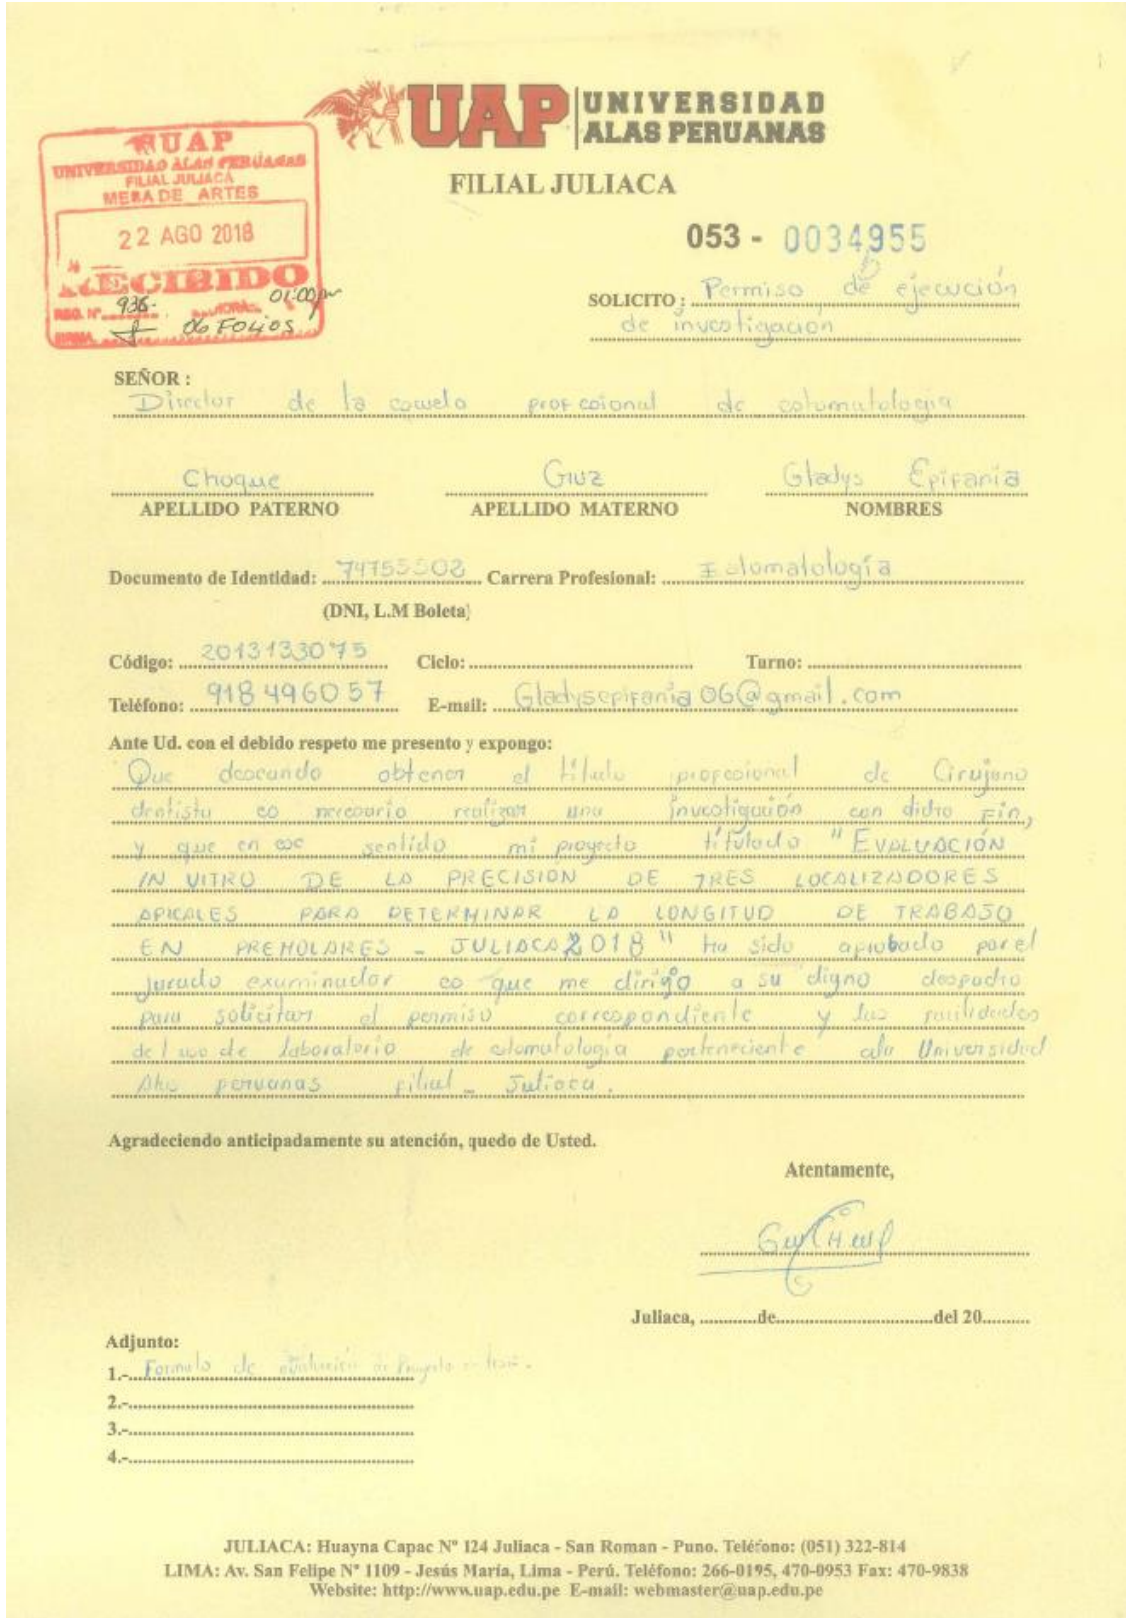 UAP UNIVERSIDAD
ALAS PERUANAS
FILIAL JULIACA
UAP
UNIVERSIDAD ALAS PERUANAS
FILIAL JULIACA
MESA DE ARTES
22 AGO 2018
RECIBIDO
REG. N° 936. 01:00pm
06 FOLIOS
053 - 0034955
SOLICITO : Permiso de ejecución
de investigación
SEÑOR :
Director de la escuela profesional de estomatología
Choque Cruz Gladys Epifania
APELLIDO PATERNO APELLIDO MATERNO NOMBRES
Documento de Identidad: 74755502 Carrera Profesional: Estomatología
(DNI, L.M Boleta)
Código: 2013133075 Ciclo: Turno:
Teléfono: 918496057 E-mail: Gladysepifania06@gmail.com
Ante Ud. con el debido respeto me presento y expongo:
Que deseando obtener el título profesional de Cirujano
dentista es necesario realizar una investigación con dicho fin,
y que en ese sentido mi proyecto titulado "EVALUACIÓN
IN VITRO DE LA PRECISION DE TRES LOCALIZADORES
APICALES PARA DETERMINAR LA LONGITUD DE TRABAJO
EN PREMOLARES - JULIACA 2018" ha sido aprobado por el
jurado examinador es que me dirijo a su digno despacho
para solicitar el permiso correspondiente y las facilidades
del uso de laboratorio de estomatología perteneciente a la Universidad
Alas peruanas filial - Juliaca.
Agradeciendo anticipadamente su atención, quedo de Usted.
Atentamente,
Juliaca, ............de.....................................del 20..........
Adjunto:
1.- Formato de evaluación de Proyecto de tesis.
2.-
3.-
4.-
JULIACA: Huayna Capac N° 124 Juliaca - San Roman - Puno. Teléfono: (051) 322-814
LIMA: Av. San Felipe N° 1109 - Jesús María, Lima - Perú. Teléfono: 266-0195, 470-0953 Fax: 470-9838
Website: http://www.uap.edu.pe E-mail: webmaster@uap.edu.pe